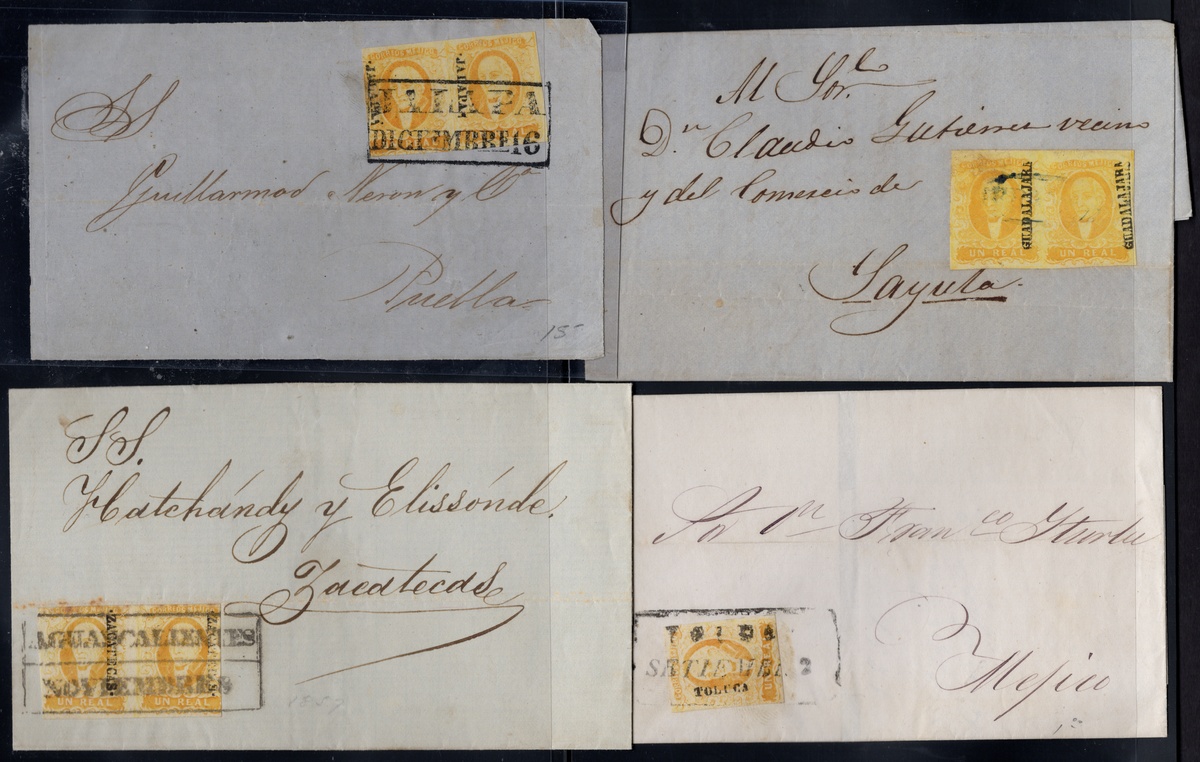 SS.
Guillarmod Neron y Ca
Puebla
15
JALAPA
DICIEMBRE 16
Al Sor.
Dn Claudio Gutiérrez vecino
y del Comercio de
Sayula.
GUADALAJARA
GUADALAJARA
UN REAL
UN REAL
SS.
Hatchándy y Elissónde.
Zacatecas
AGUASCALIENTES
NOVIEMBRE 8
ZACATECAS.
ZACATECAS.
UN REAL
UN REAL
1857
Sor Dn Franco Yturbe
Mejico
TOLUCA
SETIEMBRE
TOLUCA